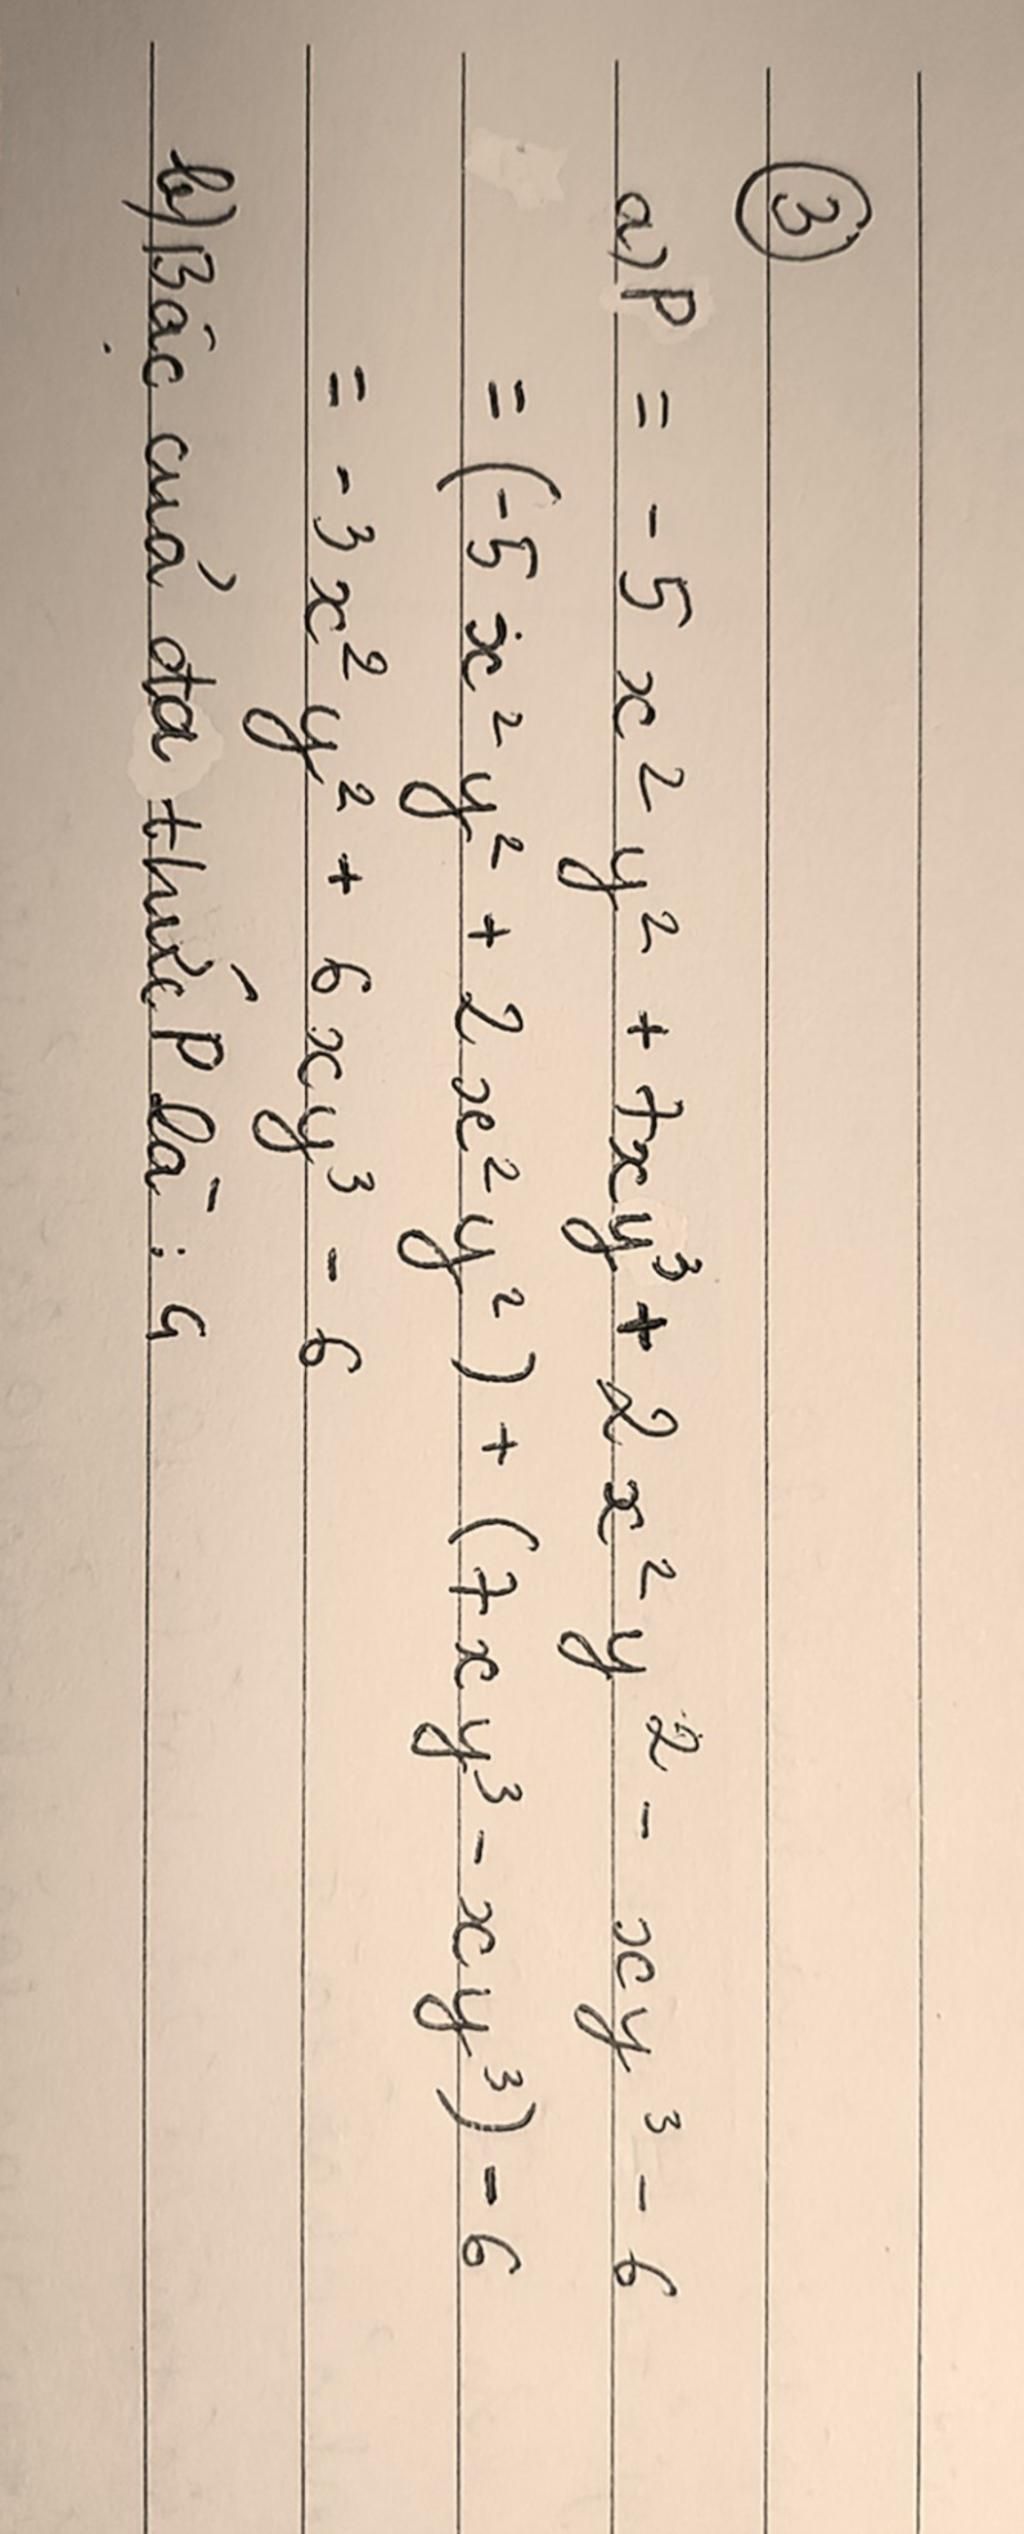 3
a) P = - 5x²y² + 7xy³ + 2x²y² - xy³ - 6
= (-5x²y² + 2x²y²) + (7xy³ - xy³) - 6
= - 3x²y² + 6xy³ - 6
b) Bác của đa thức P là : 4